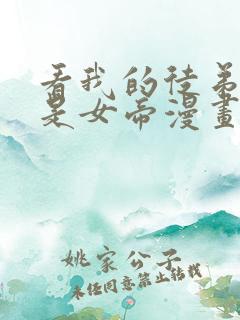 看我的徒弟
是女帝漫畫
姚家公子
未任同意禁止转载